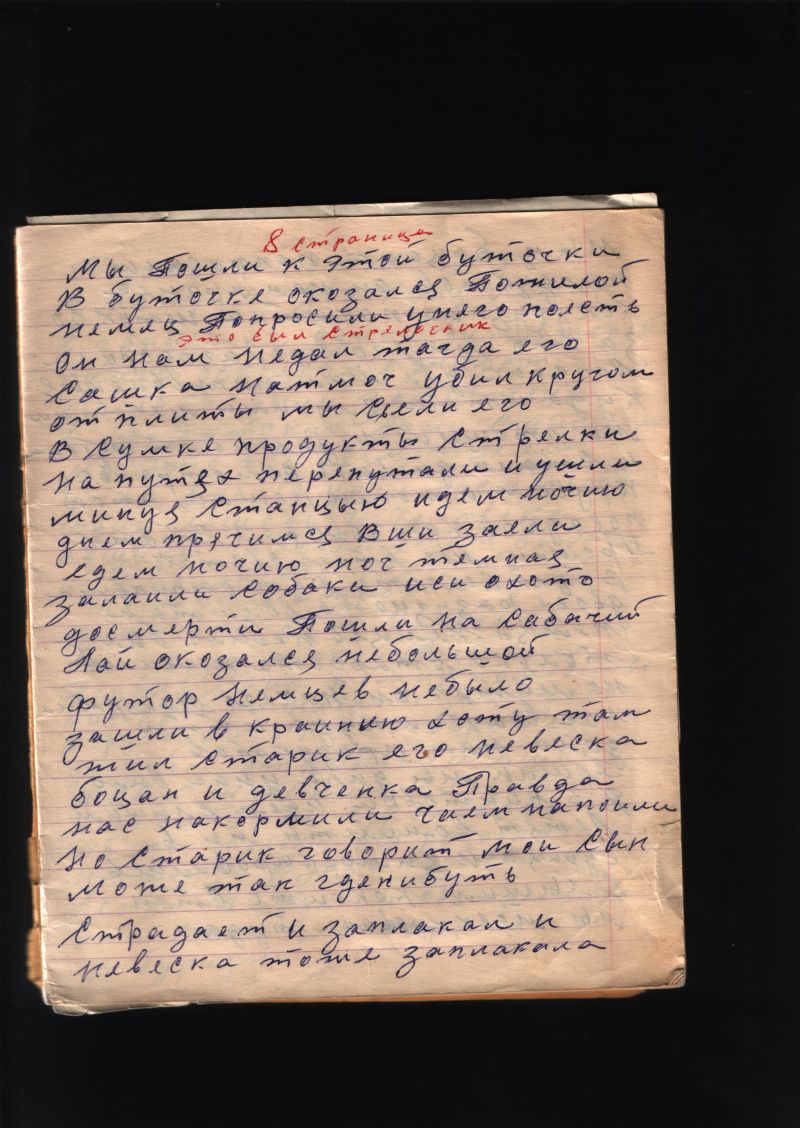 8 страница
Мы Пошли к этой буточки
В буточке окозался Пожилой
немец Попросили унего поесть
это был стрелочник
Он нам недал тагда его
Сашка натмоч убил кругом
от плиты мы сьели его
В Сумке продукты Стрелки
на путях перепутали и ушли
минуя Станцыю идем ночию
днем прячимся Вши заели
едем ночию ноч темная
залаили собаки иси охото
досмерти Пошли на сабачий
Лай окозался небольшой
футор Немцев небыло
зашли в краинию хату там
жил Старик его невеска
боцан и девченка Правда
нас накормили чаем напоили
но Старик говорит мои Сын
може так гденибуть
Страдает и заплакал и
невеска тоже заплакала